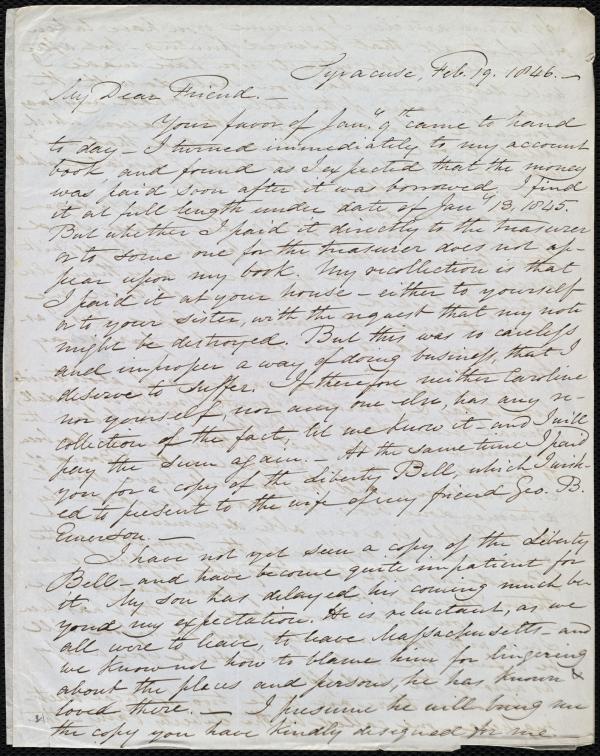 Syracuse, Feb. 19. 1846. —
My Dear Friend. —
Your favor of Jan.y 9th came to hand
to day — I turned immediately to my account
book and found as I expected that the money
was paid soon after it was borrowed. I find
it at full length under date of Jany 13, 1845.
But whether I paid it directly to the treasurer
or to some one for the treasurer does not ap-
pear upon my book. My recollection is that
I paid it at your house — either to yourself
or to your sister, with the request that my note
might be destroyed. But this was so careless
and improper a way of doing business, that I
deserve to suffer. If therefore neither Caroline
nor yourself, nor any one else, has any re-
collection of the fact, let me know it — and I will
pay the sum again. — At the same time I paid
you for a copy of the Liberty Bell which I wish-
ed to present to the wife of my friend Geo. B.
Emerson. —
I have not yet seen a copy of the Liberty
Bell — and have become quite impatient for
it. My son has delayed his coming much be-
yond my expectation. He is reluctant, as we
all were to leave, to leave Massachusetts — and
we know not how to blame him for lingering
about the places and persons, he has known &
loved there. — I presume he will bring me
the copy you have kindly designed for me